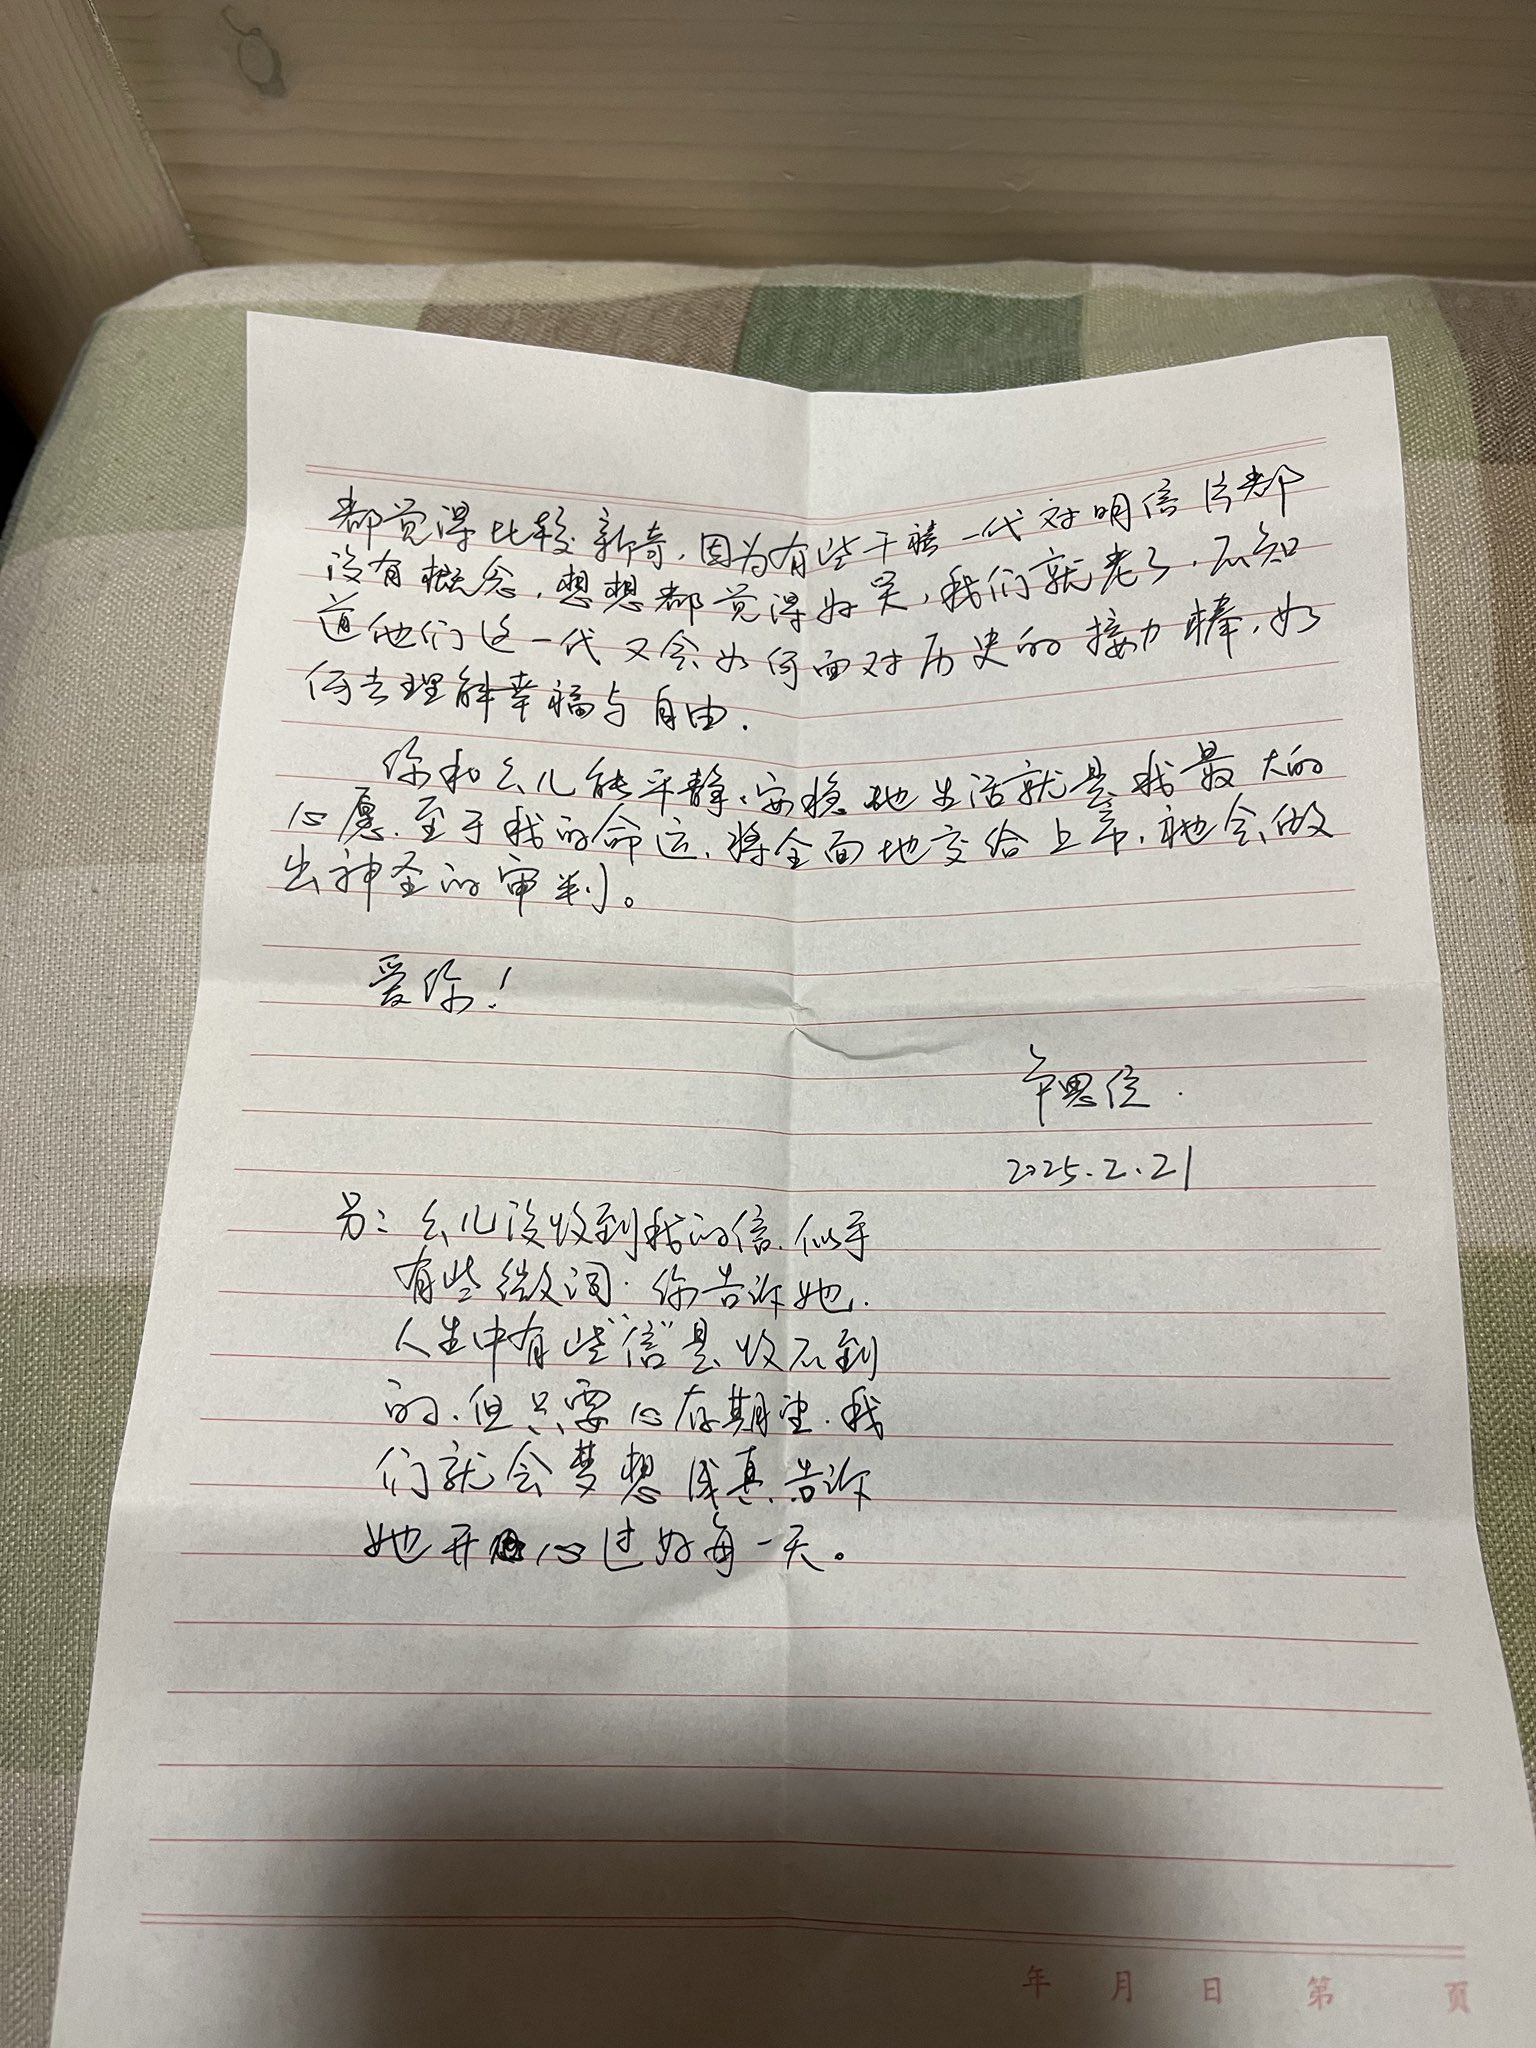 都觉得比较新奇，因为有些千禧一代对明信片都
没有概念，想想都觉得好笑，我们就老了，不知
道他们这一代又会如何面对历史的接力棒，如
何去理解幸福与自由.
你和幺儿能平静、安稳地生活就是我最大的
心愿.至于我的命运，将全面地交给上帝，祂会做
出神圣的审判。
爱你！
2025.2.21
另：幺儿没收到我的信，似乎
有些微词.你告诉她，
人生中有些“信”是收不到
的，但只要心存期望，我
们就会梦想成真，告诉
她开心过好每一天。
年 月 日 第 頁